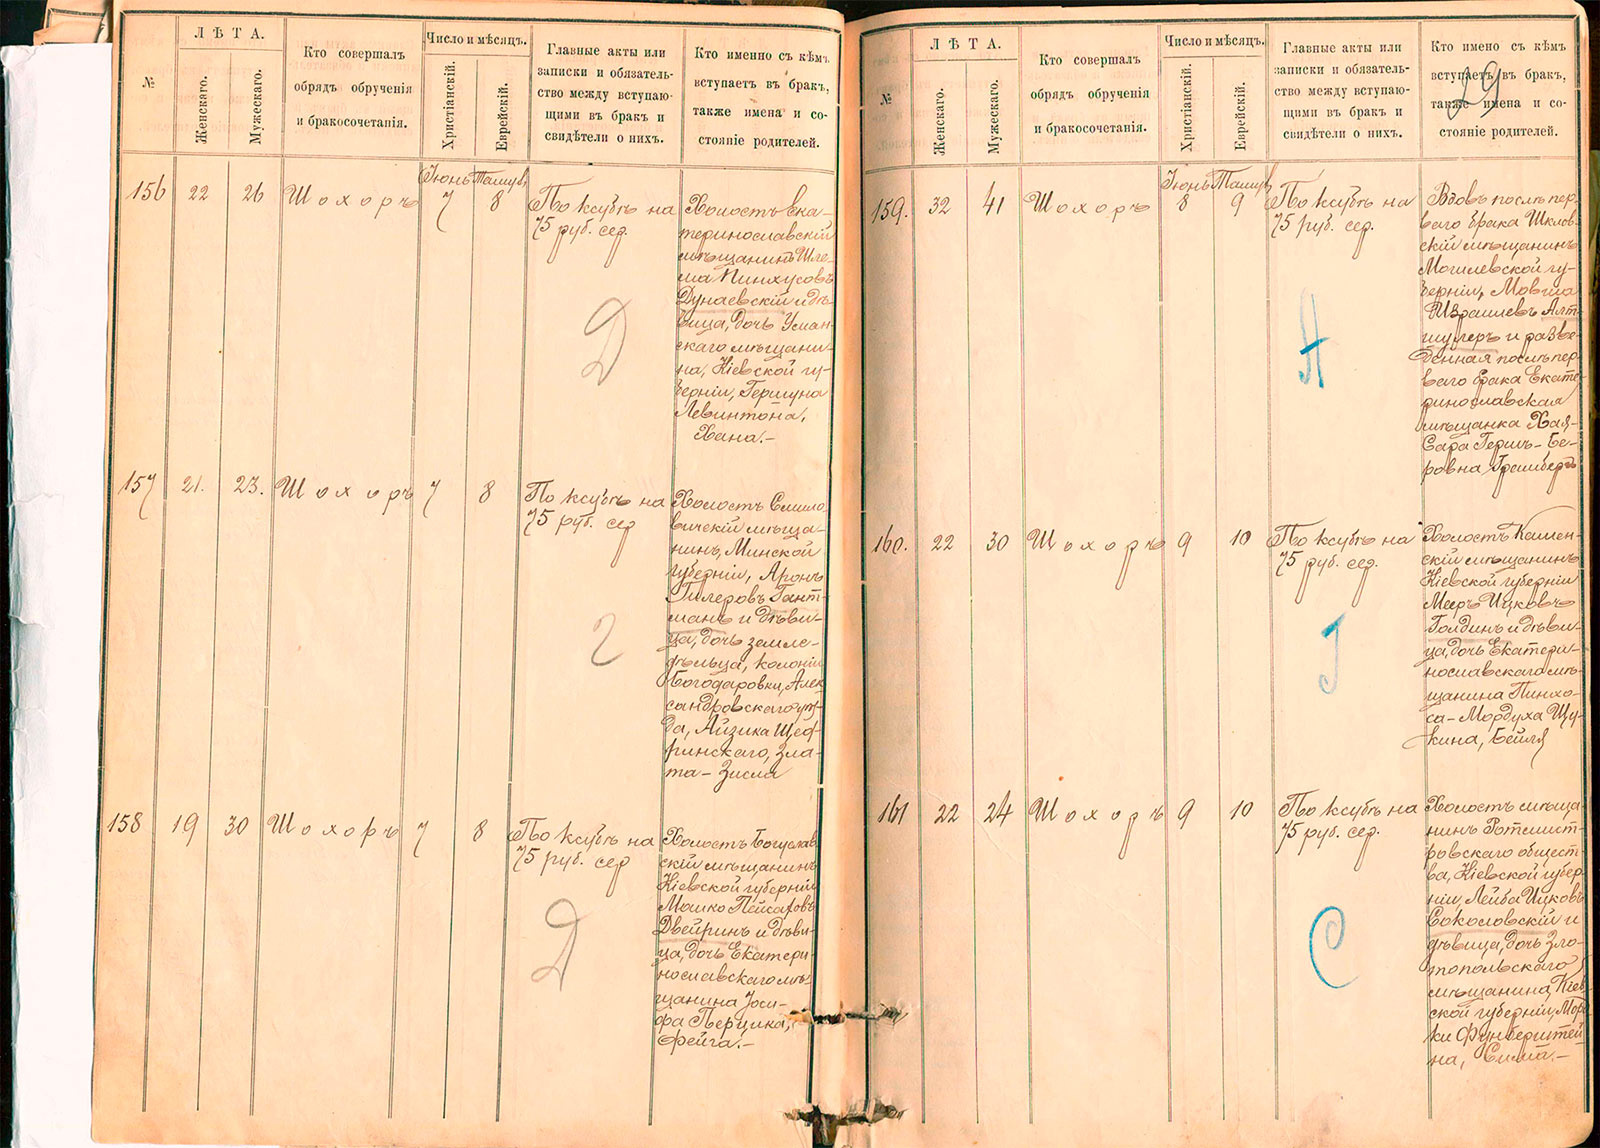 №
ЛѢТА.
Женскаго.
Мужескаго.
Кто совершалъ
обрядъ обрученія
и бракосочетанія.
Число и мѣсяцъ.
Христіанскій.
Еврейскій.
Главные акты или
записки и обязатель-
ство между вступаю-
щими въ бракъ и
свидѣтели о нихъ.
Кто именно съ кѣмъ
вступаетъ въ бракъ,
также имена и со-
стояніе родителей.
Іюнь
156 22 26 Шохоръ 7 8
По ксубѣ на
75 руб. сер.
Холостъ Ека-
теринославскій
мѣщанинъ Шле-
ма Пинхусовъ
Дунаевскій и дѣ-
вица, дочь Уман-
скаго мѣщани-
на, Кіевской гу-
берніи, Гершуна
Левинтона,
Хана.—
Д
157 21. 23. Шохоръ 7 8
По ксубѣ на
75 руб. сер
Холостъ Смило-
вичскій мѣща-
нинъ, Минской
губерніи, Аронъ
Гилеровъ Гант-
манъ и дѣви-
ца, дочь земле-
дѣльца, колоніи
Богодаровки, Алек-
сандровскаго уѣз-
да, Айзика Щед-
ринскаго, Зла-
та-Зисла
Г
158 19 30 Шохоръ 7 8
По ксубѣ на
75 руб. сер
Холостъ Богуслав-
скій мѣщанинъ
Кіевской губерніи
Мошко Пейсаровъ
Двейринъ и дѣви-
ца, дочь Екатери-
нославскаго мѣ-
щанина Іоси-
фа Перцика,
Фейга.—
Д
№
ЛѢТА.
Женскаго.
Мужескаго.
Кто совершалъ
обрядъ обрученія
и бракосочетанія.
Число и мѣсяцъ.
Христіанскій.
Еврейскій.
Главные акты или
записки и обязатель-
ство между вступаю-
щими въ бракъ и
свидѣтели о нихъ.
Кто имено съ кѣмъ
вступаетъ въ бракъ,
также имена и со-
стояніе родителей.
29
Іюнь
159. 32 41 Шохоръ 8 9
По ксубѣ на
75 руб. сер.
Вдовъ послѣ пер-
ваго брака Шклов-
скій мѣщанинъ
Могилевской гу-
берніи, Мовша
Израилевъ Альт-
шулеръ и разве-
денная послѣ пер-
ваго брака Екате-
ринославская
мѣщанка Хая-
Сара Герш-Бе-
ровна
А
160. 22 30 Шохоръ 9 10
По ксубѣ на
75 руб. сер.
Холостъ Камен-
скій мѣщанинъ
Кіевской губерніи
Мееръ Ицковъ
Голдинъ и дѣви-
ца, дочь Екатери-
нославскаго мѣ-
щанина Пинхо-
са-Мордуха Щу-
кина, Бейля
Г
161 22 24 Шохоръ 9 10
По ксубѣ на
75 руб. сер.
Холостъ мѣща-
нинъ Ротмист-
ровскаго общест-
ва, Кіевской губер-
ніи, Лейба Ицковъ
Соколовскій и
дѣвица, дочь Зло-
топольскаго
мѣщанина, Кіев-
ской губерніи, Мор-
ки Фунберштей-
на, Сима.—
С